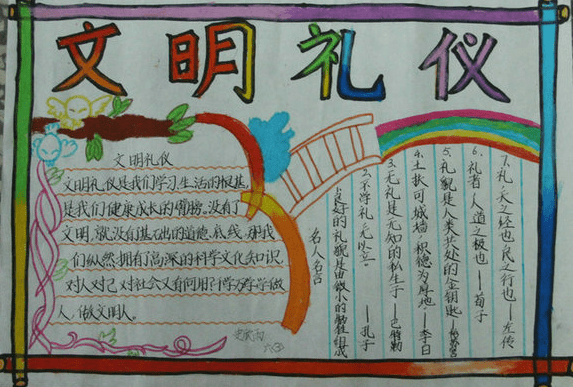 文明礼仪
文明礼仪
文明礼仪是我们学习、生活的根基,
是我们健康成长的臂膀。没有了
文明,就没有基础的道德底线,那我
们纵然拥有高深的科学文化知识,
对人对己对社会又有何用?
人,做文明人。
名人名言
良好的礼貌是由微小的牺牲组成
2、不学礼,无以立。——孔子
3、无礼是无知的私生子——巴特勒
4、土扶可城墙,积德为厚地——李白
5、礼貌是人类共处的金钥匙——松苏内吉
6、礼者,人道之极也——荀子
7、礼,天之经也,民之行也——左传
六